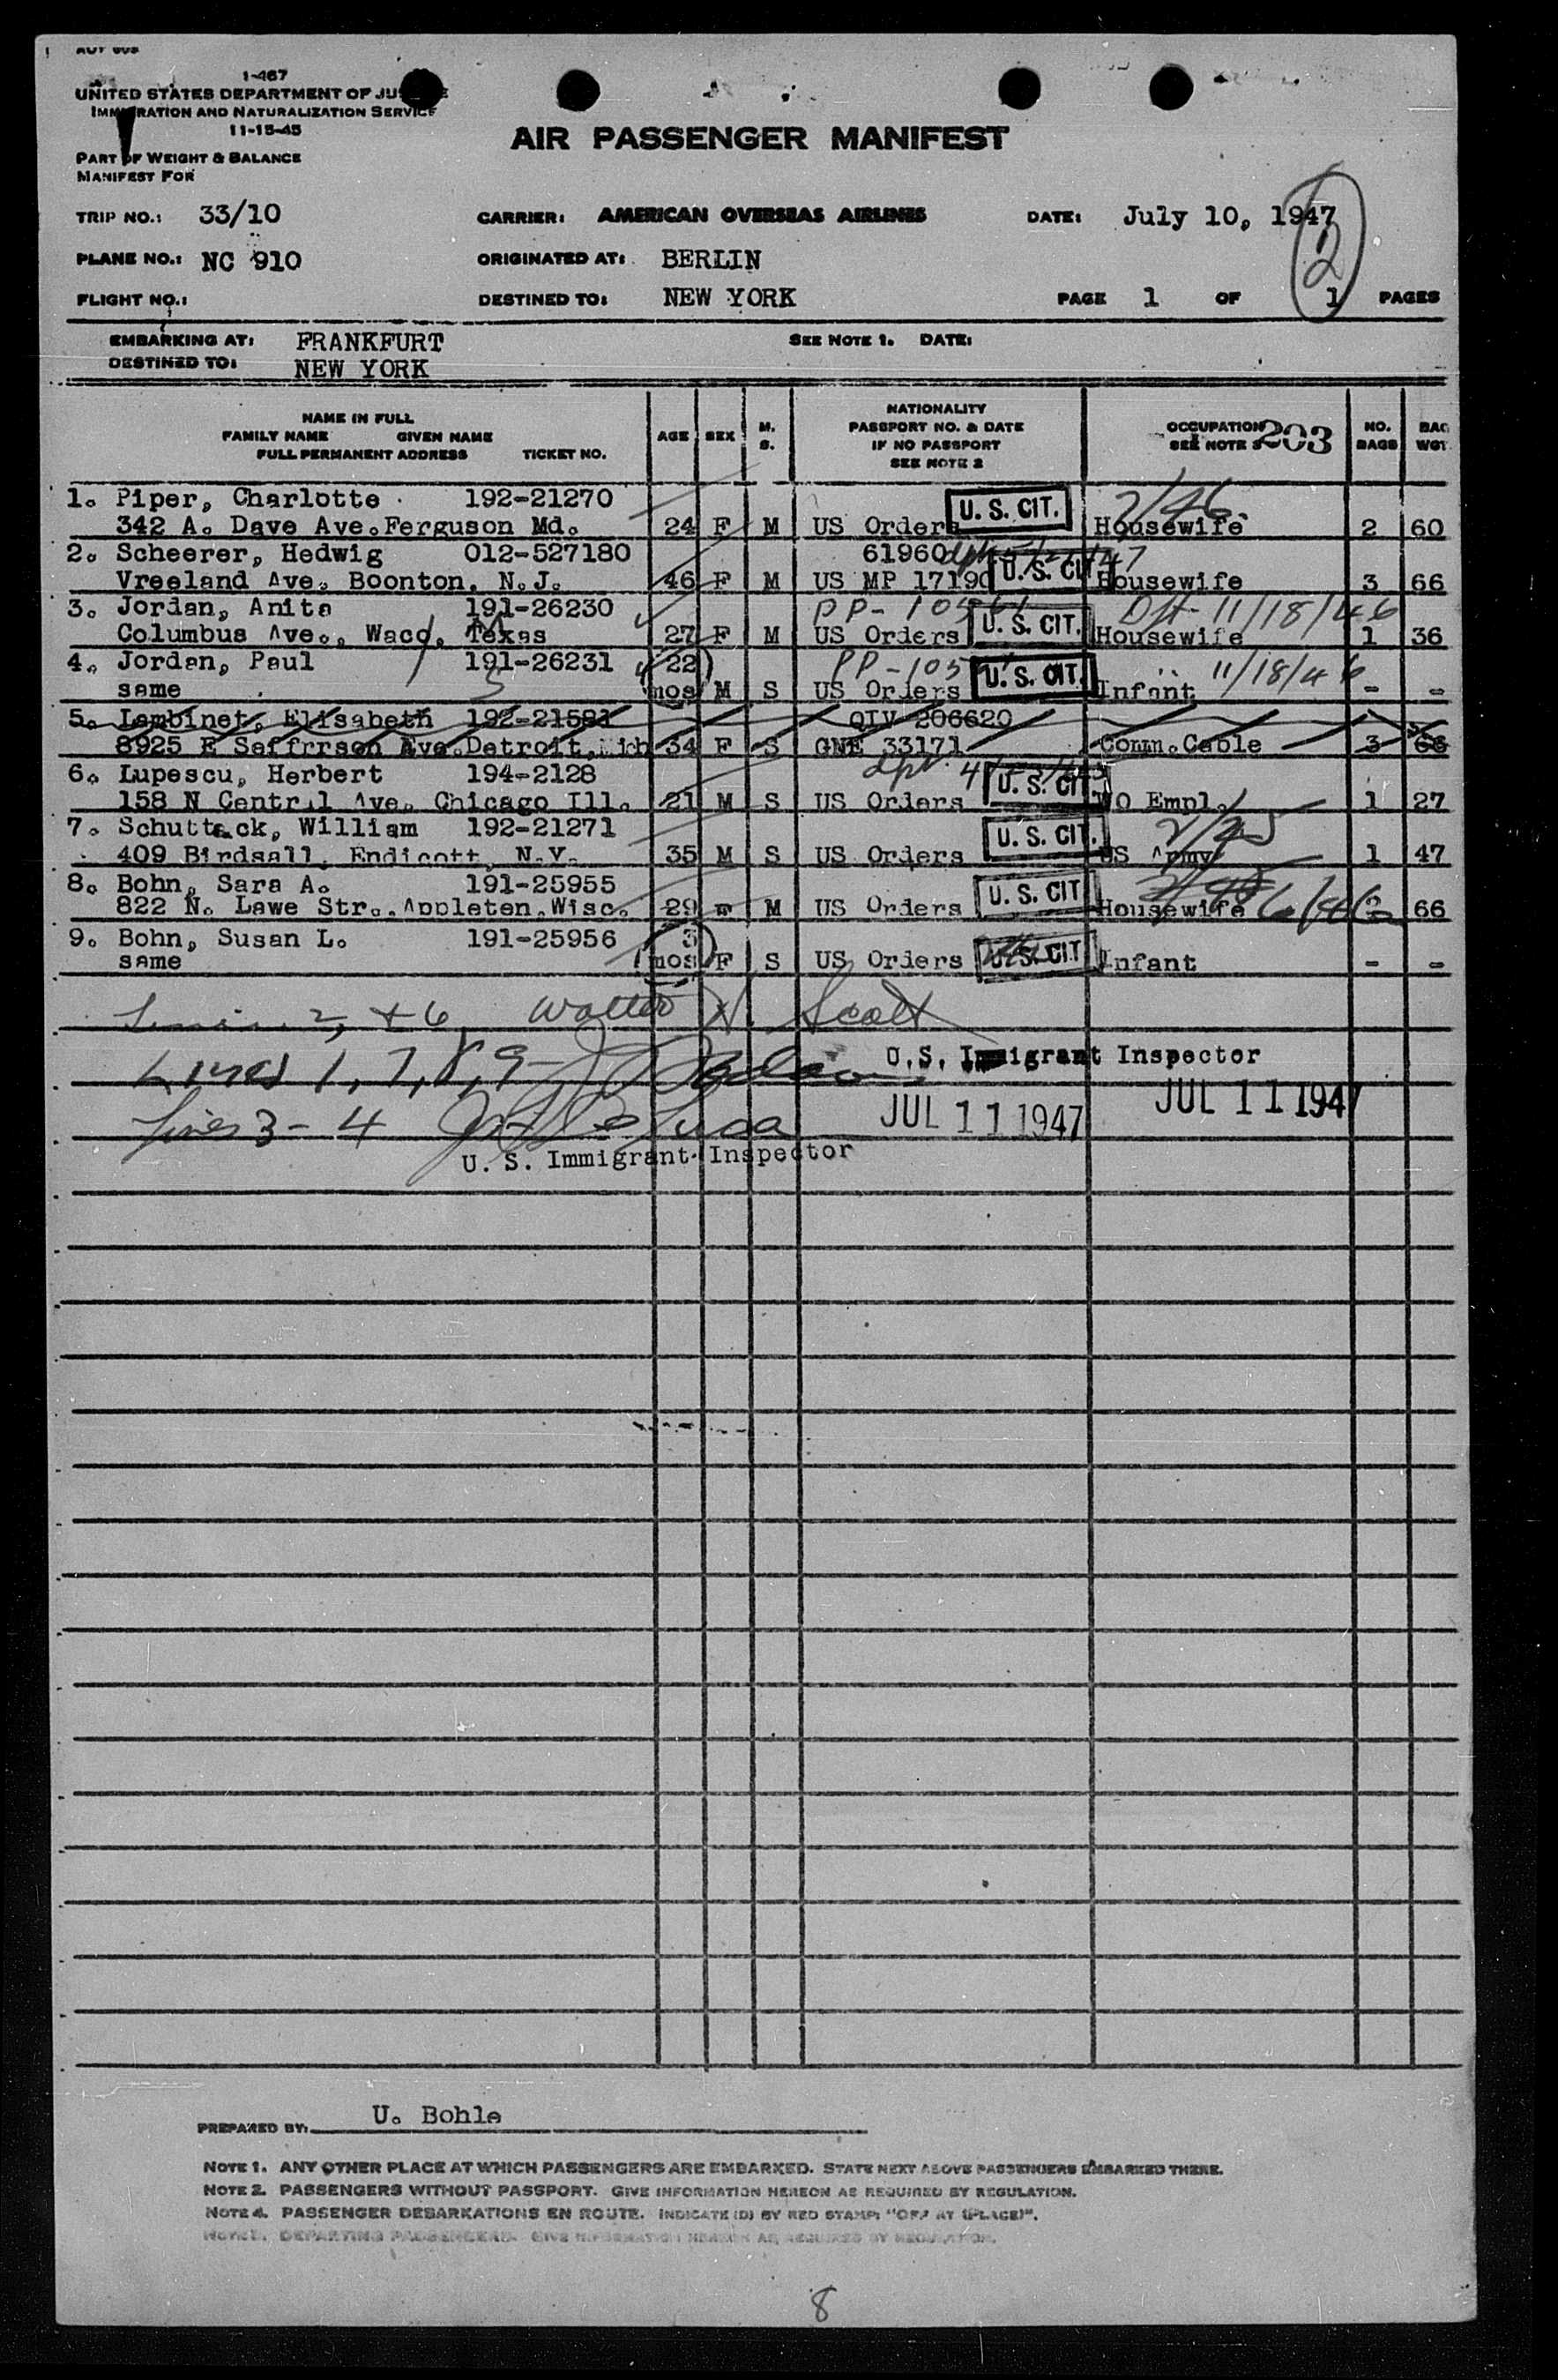 1-467
UNITED STATES DEPARTMENT OF
IMMIGRATION AND NATURALIZATION SERVICE
11-15-45
PART OF WEIGHT & BALANCE
MANIFEST FOR
AIR PASSENGER MANIFEST
TRIP NO.: 33/10 CARRIER: AMERICAN OVERSEAS AIRLINES DATE: July 10, 1947
2
PLANE NO.: NC 910 ORIGINATED AT: BERLIN
FLIGHT NO.: DESTINED TO: NEW YORK PAGE 1 OF 1 PAGES
EMBARKING AT: FRANKFURT SEE NOTE 1. DATE:
DESTINED TO: NEW YORK
NAME IN FULL
FAMILY NAME GIVEN NAME
FULL PERMANENT ADDRESS TICKET NO.
AGE SEX M. S.
NATIONALITY
PASSPORT NO. & DATE
IF NO PASSPORT
SEE NOTE 2
OCCUPATION
SEE NOTE 3
203
NO. BAGS
BAG WGT
1. Piper, Charlotte 192-21270 U. S. CIT. 2/46
342 A. Dave Ave.Ferguson Md. 24 F M US Orders Housewife 2 60
2. Scheerer, Hedwig 012-527180 61960
Vreeland Ave. Boonton, N.J. 46 F M US MP 17190 U. S. CIT Housewife 3 66
3. Jordan, Anita 191-26230 PP- Dft- 11/18/46
Columbus Ave., Waco, Texas 27 F M US Orders U. S. CIT. Housewife 1 36
4. Jordan, Paul 191-26231 22 PP-105 11/18/46
same mos M S US Orders U. S. CIT. Infant - -
5. Lambinet, Elisabeth 192-21581 QIV 206620
8925 E Saffrrson Ave.Detroit,Mich 34 F S GNE 33171 Comm.Cable 3 66
6. Lupescu, Herbert 194-2128
158 N Central Ave. Chicago Ill. 21 M S US Orders U. S. CIT WO Empl. 1 27
7. Schuttack, William 192-21271 U. S. CIT. 2/45
409 Birdsall, Endicott, N.Y. 35 M S US Orders US Army 1 47
8. Bohn, Sara A. 191-25955 U. S. CIT
822 N. Lawe Str..Appleten.Wisc. 29 F M US Orders Housewife 6/46 66
9. Bohn, Susan L. 191-25956 3
same mos F S US Orders U. S. CIT Infant - -
2, + 6, Walter H. Scott
Lines 1, 7, 8, 9-
U.S. Immigrant Inspector
JUL 11 1947
Lines 3-4 De Luca
JUL 11 1947
U. S. Immigrant Inspector
PREPARED BY: U. Bohle
NOTE 1. ANY OTHER PLACE AT WHICH PASSENGERS ARE EMBARKED. STATE NEXT ABOVE PASSENGERS EMBARKED THERE.
NOTE 2. PASSENGERS WITHOUT PASSPORT. GIVE INFORMATION HEREON AS REQUIRED BY REGULATION.
NOTE 4. PASSENGER DEBARKATIONS EN ROUTE. INDICATE (D) BY RED STAMP: "OFF AT (PLACE)".
NOTE 3. DEPARTING PASSENGERS. GIVE INFORMATION HEREON AS REQUIRED BY REGULATION.
8